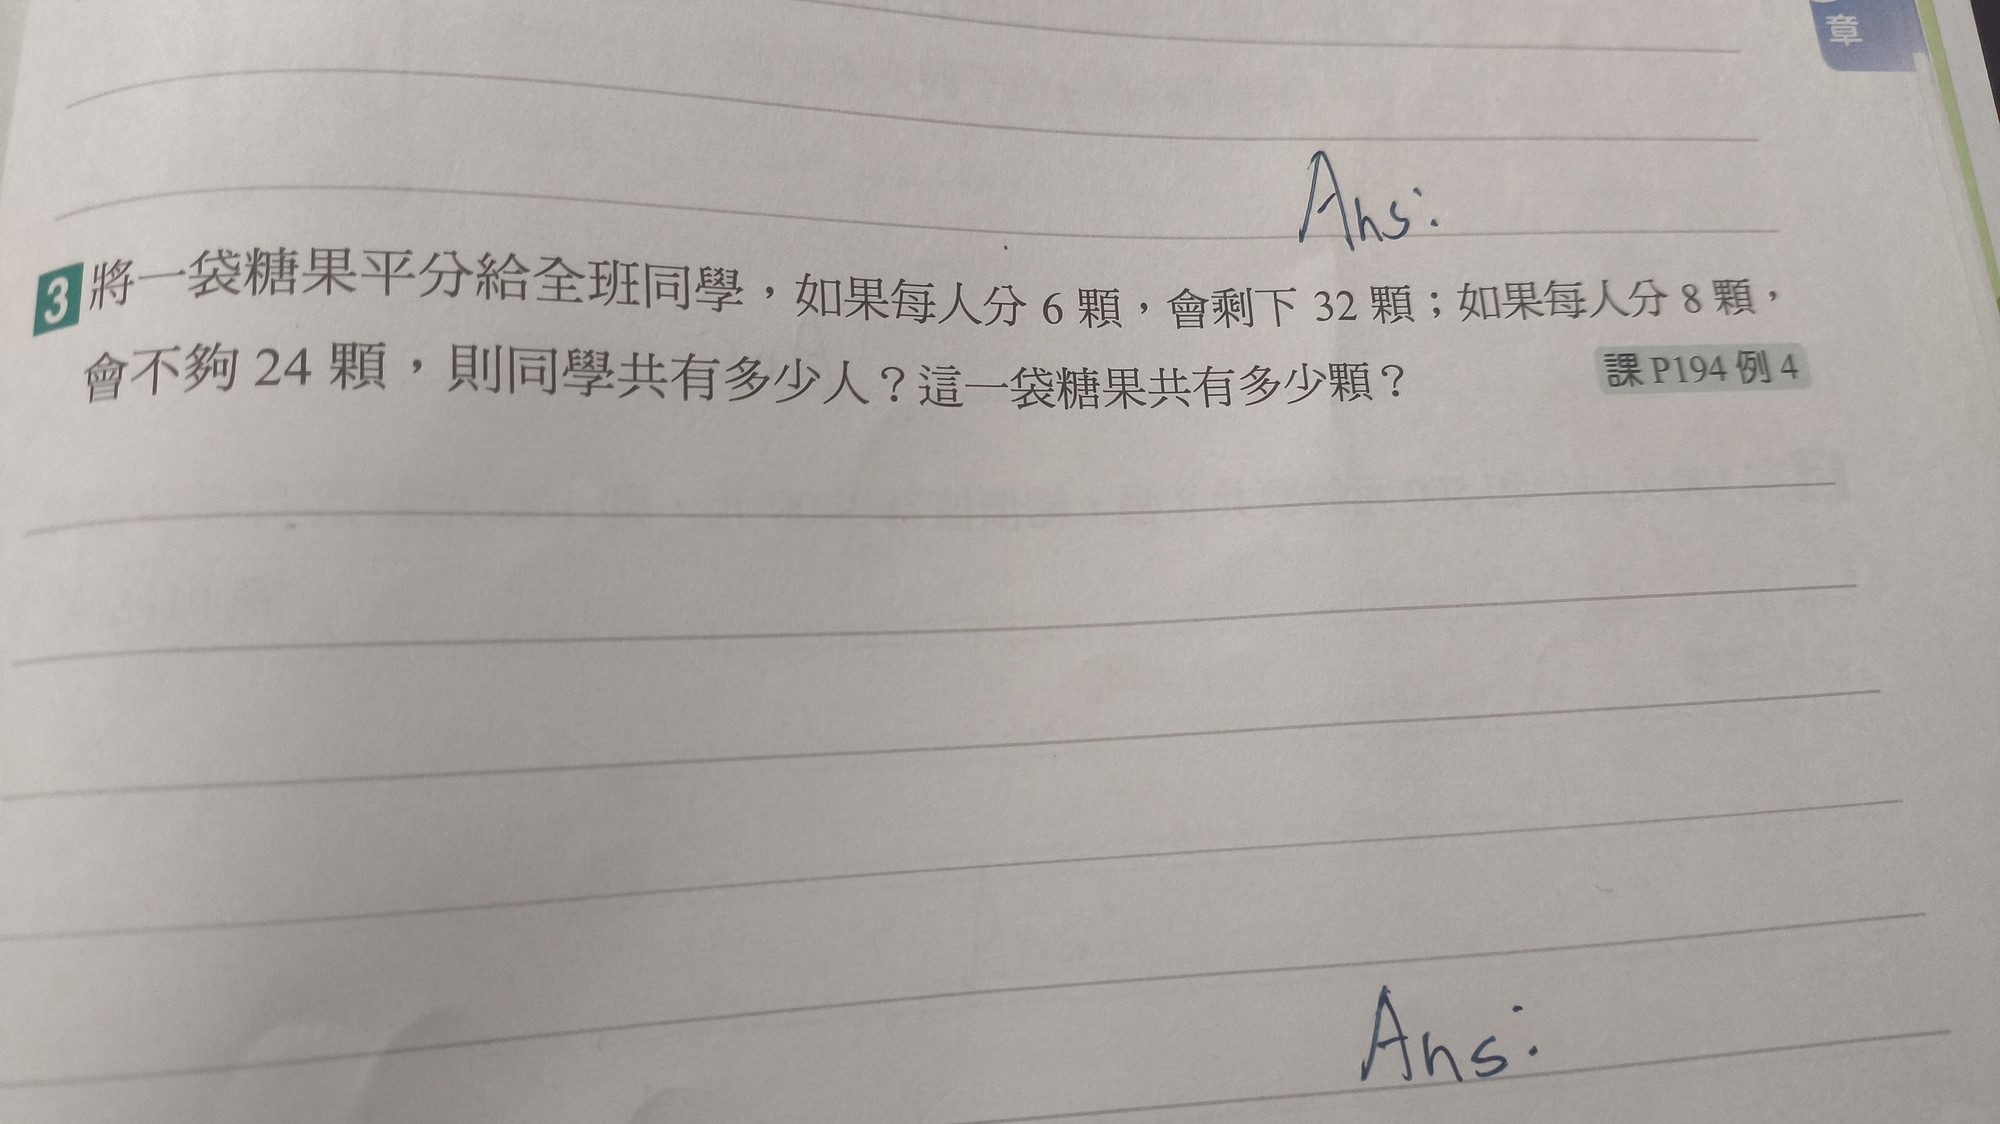 章
Ans:
3 將一袋糖果平分給全班同學，如果每人分 6 顆，會剩下 32 顆；如果每人分 8 顆，
會不夠 24 顆，則同學共有多少人？這一袋糖果共有多少顆？ 課 P194 例 4
Ans: